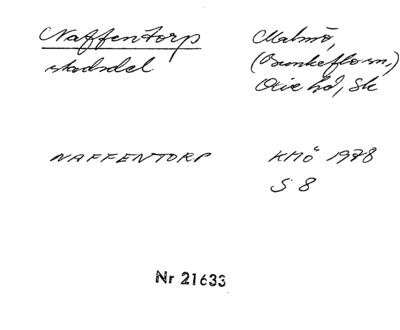 Naffentorp
stadsdel
Malmö,
(Bunkeflo sn,)
Oxie hd, Sk
NAFFENTORP
KMÖ 1978
S 8
Nr 21633